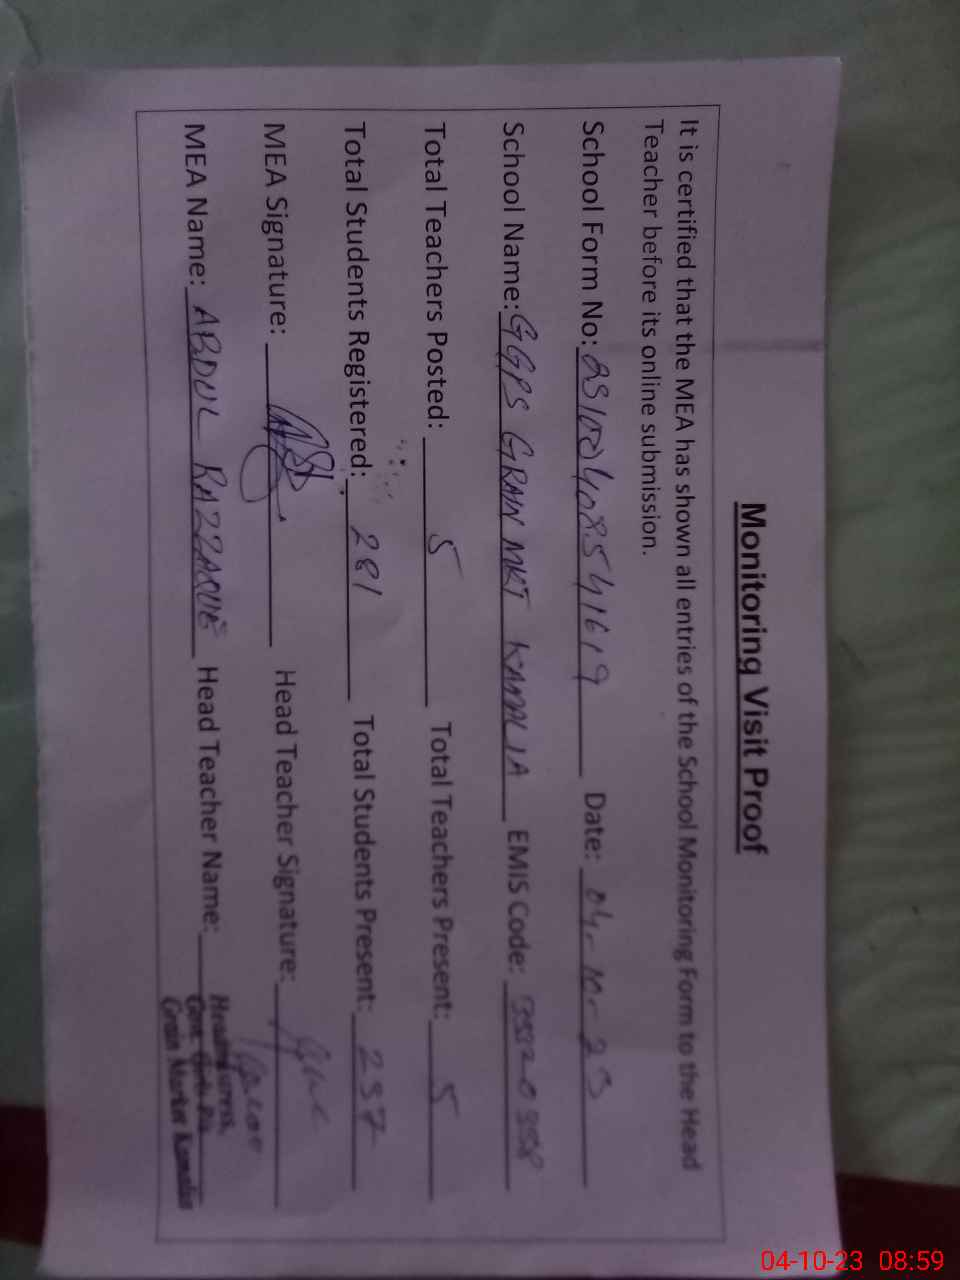 Monitoring Visit Proof
It is certified that the MEA has shown all entries of the School Monitoring Form to the Head
Teacher before its online submission.
School Form No: Date: 04-10-23
School Name: GGPS GRAIN MKT KAMALIA EMIS Code:
Total Teachers Posted: 5 Total Teachers Present: 5
Total Students Registered: 281 Total Students Present: 237
MEA Signature: Head Teacher Signature:
MEA Name: ABDUL RAZZAQUE Head Teacher Name:
Headmistress,
Govt. Girls
Grain Market Kamalia
04-10-23 08:59